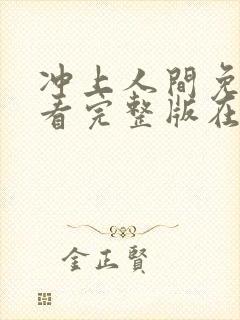 冲上人間免
看完整版在
金正賢